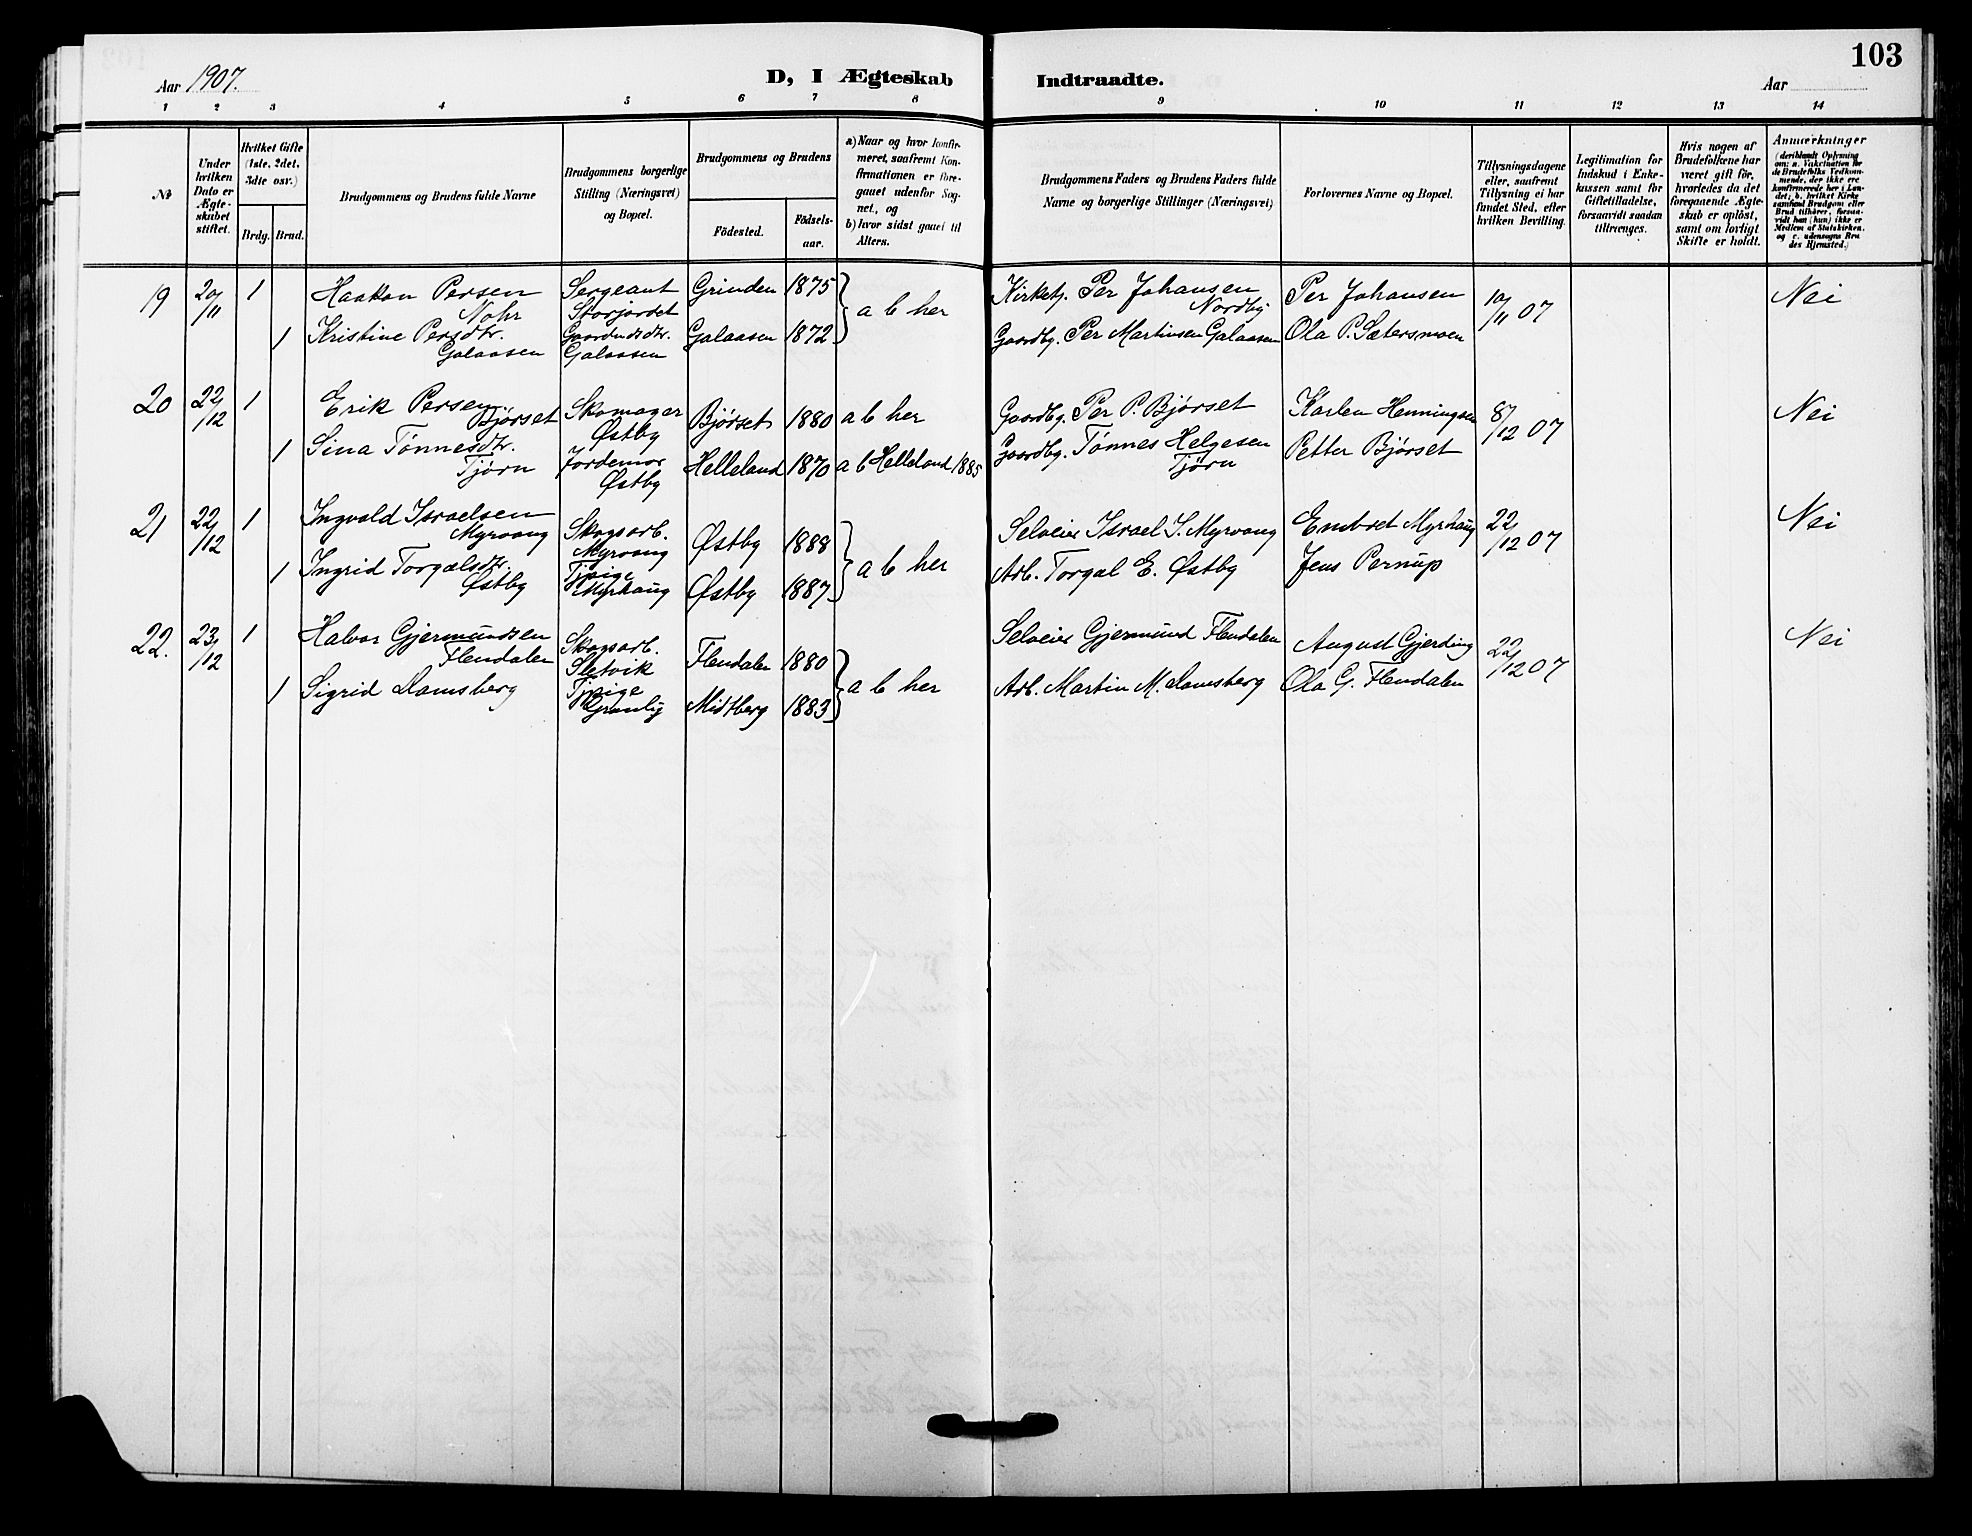 103
Aar 1907.
D, I Ægteskab Indtraadte.
Aar
1 2 3 4 5 6 7 8 9 10 11 12 13 14
№
Under hvilken Dato er Ægteskabet stiftet.
Hvilket Gifte (1ste, 2det, 3dte osv.)
Brdg. Brud.
Brudgommens og Brudens fulde Navne
Brudgommens borgerlige Stilling (Næringsvei) og Bopæl.
Brudgommens og Brudens
Fødested.
Fødselsaar.
a) Naar og hvor konfirmeret, saafremt Konfirmationen er foregaaet udenfor Sognet, og
b) hvor sidst gaaet til Alters.
Brudgommens Faders og Brudens Faders fulde Navne og borgerlige Stillinger (Næringsvei)
Forlovernes Navne og Bopæl.
Tillysningsdagene eller, saafremt Tillysning ei har fundet Sted, efter hvilken Bevilling.
Legitimation for Indskud i Enkekassen samt for Giftetilladelse, forsaavidt saadan tiltrænges.
Hvis nogen af Brudefolkene har været gift før, hvorledes da det foregaaende Ægteskab er opløst, samt om lovligt Skifte er holdt.
Anmærkninger
(deriblandt Oplysning om: a. Vakcination for de Brudefolks Vedkommende, der ikke ere konfirmerede her i Landet; b. hvilket Kirkesamfund Brudgom eller Brud tilhører, forsaavidt han (hun) ikke er Medlem af Statskirken, og c. udensogns Brudes Hjemsted.)
19 20/11 1 Haakon Persen Nohr Sergeant Storjordet Grinden 1875 a b her Kirketj. Per Johansen Nordby Per Johansen 10/11 07 Nei
1 Kristine Persdtr. Galaasen Gaardmdsdtr. Galaasen Galaasen 1872 Gaardbg. Per Martinsen Galaasen Ola P. Sætersmoen
20 22/12 1 Erik Persen Bjørset Skomager Østby Bjørset 1880 a b her Gaardbg. Per P. Bjørset Karlen Henningsen 8/12 07 Nei
1 Sina Tønnesdtr. Tjørn Jordemor Østby Helleland 1870 a b Helleland 1885 Gaardbg. Tønnes Helgesen Tjørn Petter Bjørset
21 22/12 1 Ingvald Israelsen Myrvang Skogsarb. Myrvang Østby 1888 a b her Selveier Israel I. Myrvang Embret Myrhaug 22/12 07 Nei
1 Ingrid Torgalsdtr. Østby Tjpige Myrhaug Østby 1887 Arb. Torgal E. Østby Jens Pernup
22. 23/12 1 Halvor Gjermundsen Flendalen Skogsarb. Sletvik Flendalen 1880 a b her Selveier Gjermund Flendalen August Gjerding 22/12 07 Nei
1 Sigrid Damsberg Tjpige Granlig Midtberg 1883 Arb. Martin M. Damsberg Ola G. Flendalen